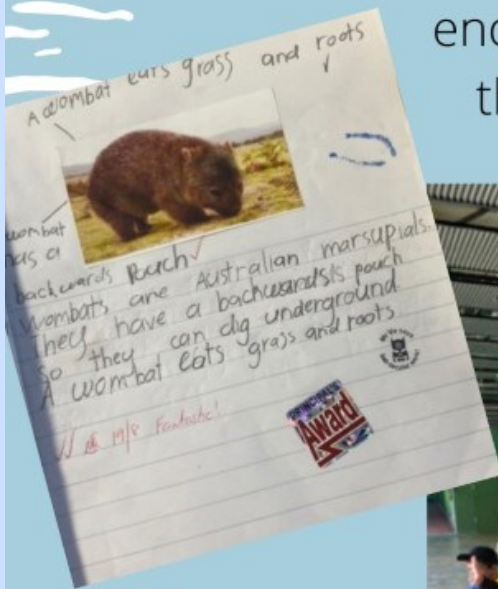 enc
th
A wombat eats grass and roots
wombat
has a
backwards Pouch
Wombats are Australian marsupials.
They have a backwards pouch
so they can dig underground
A wombat eats grass and roots
19/8 Fantastic!
Award